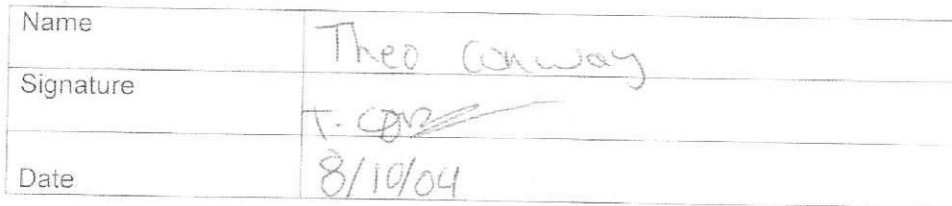 Name Theo Conway
Signature T. Con
Date 8/10/04